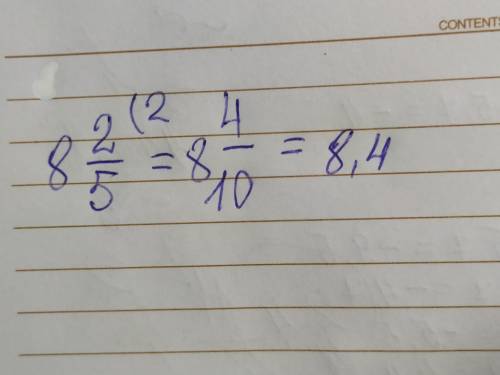 CONTENTS
8 2/5 (2 = 8 4/10 = 8,4